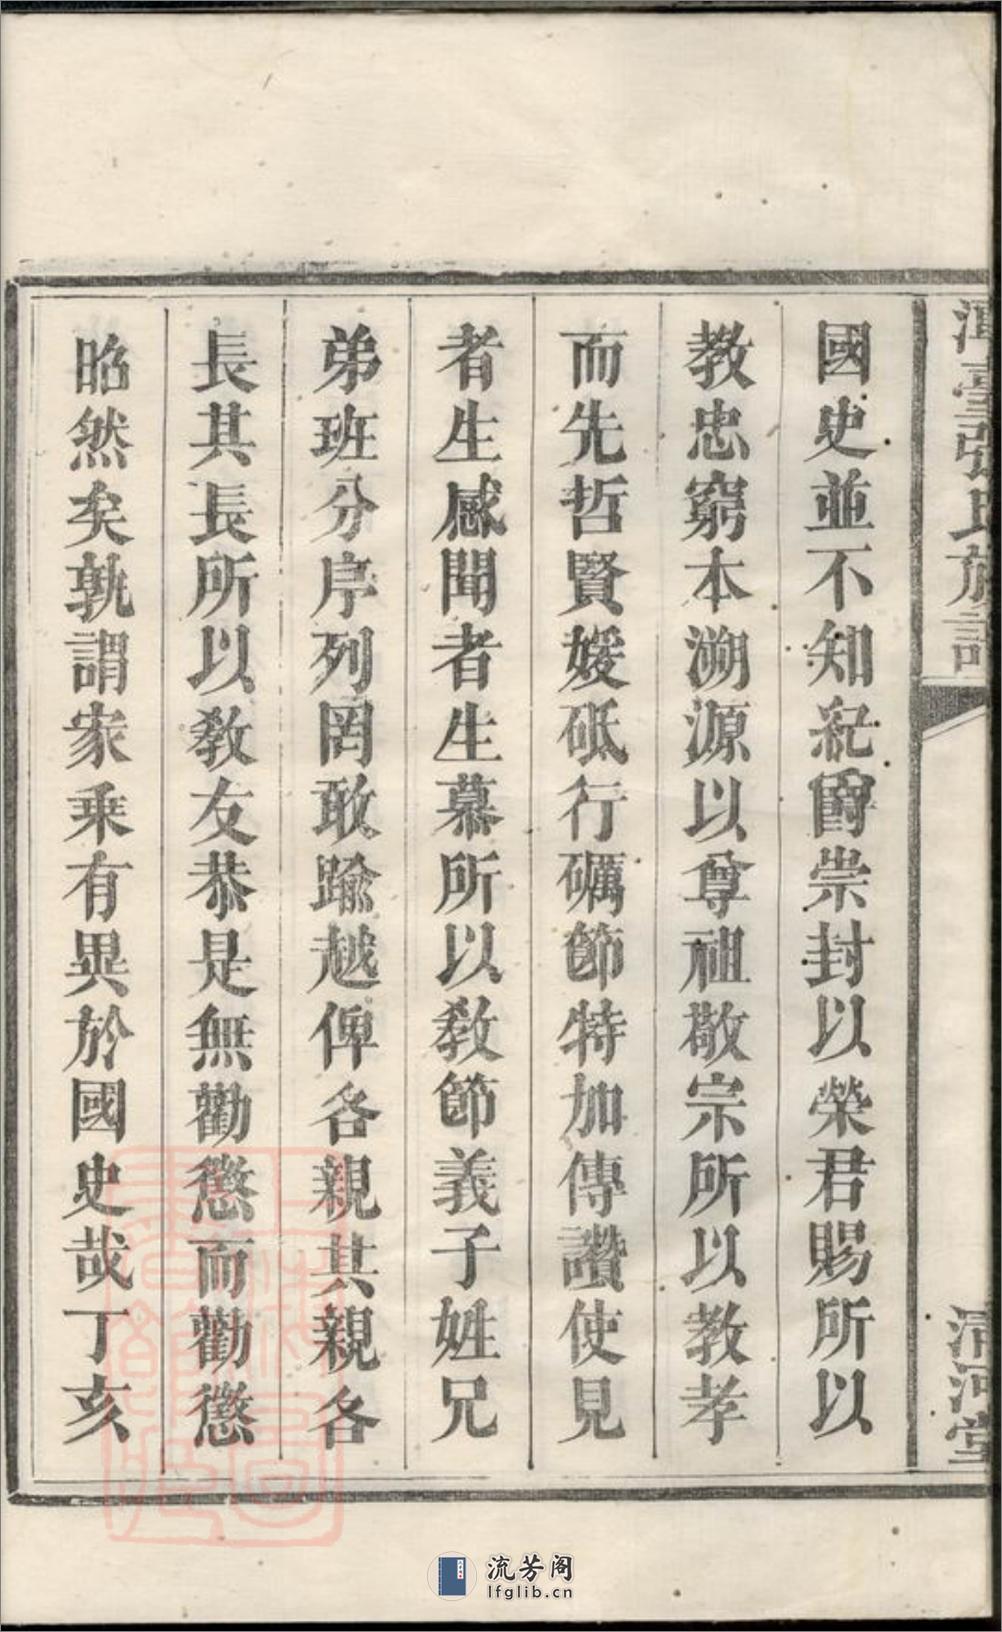 張氏族譜
清河堂
國史並不知紀爵崇封以榮君賜所以
教忠窮本溯源以尊祖敬宗所以教孝
而先哲賢媛砥行礪節特加傳讚使見
者生感聞者生慕所以教節義子姓兄
弟班分序列罔敢踰越俾各親其親各
長其長所以教友恭是無勸懲而勸懲
昭然矣孰謂家乘有異於國史哉丁亥
流芳阁
lfglib.cn